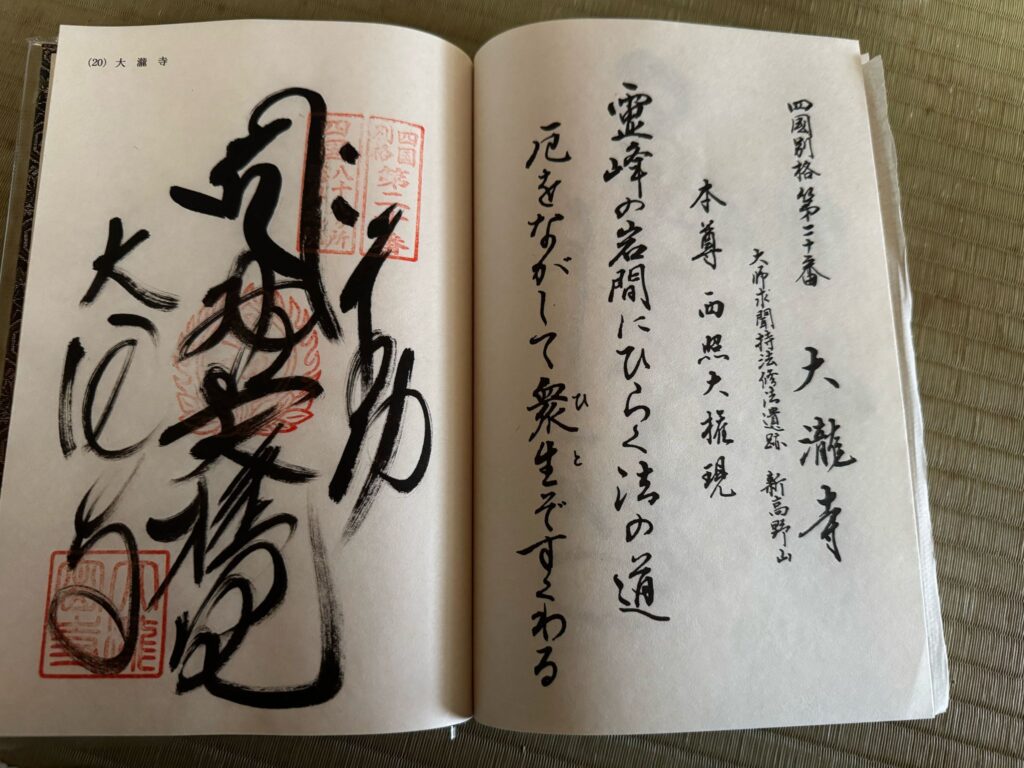 四國別格第二十番 大瀧寺
大師求聞持法修法遺跡 新高野山
本尊 西照大権現
靈峰の岩間にひらく法の道
厄をながして衆生ぞすくわる
ひと
(20) 大瀧寺
四国別格第二十番
西照大権現
大瀧寺